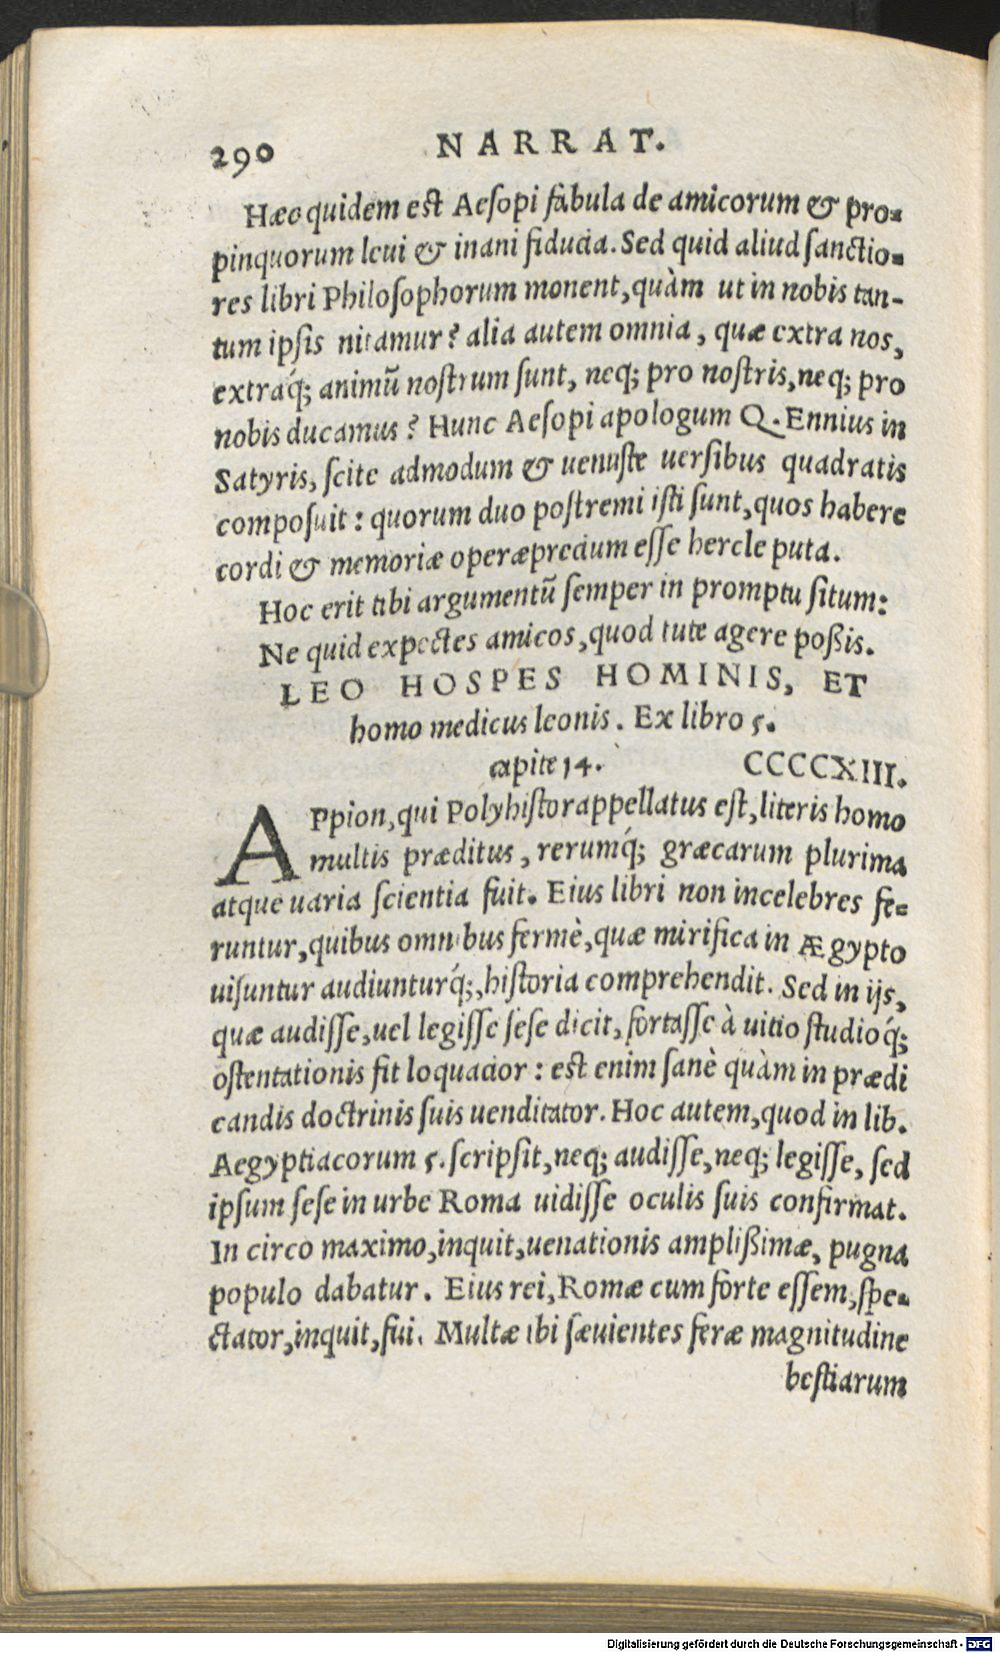 290 NARRAT.
Hæc quidem est Aesopi fabula de amicorum & pro-
pinquorum leui & inani fiducia. Sed quid aliud sanctio-
res libri Philosophorum monent, quàm ut in nobis tan-
tum ipsis nitamur? alia autem omnia, quæ extra nos,
extraq́; animū nostrum sunt, neq; pro nostris, neq; pro
nobis ducamus? Hunc Aesopi apologum Q. Ennius in
Satyris, scite admodum & uenuste uersibus quadratis
composuit: quorum duo postremi isti sunt, quos habere
cordi & memoriæ operæprecium esse hercle puta.
Hoc erit tibi argumentū semper in promptu situm:
Ne quid expectes amicos, quod tute agere poßis.
LEO HOSPES HOMINIS, ET
homo medicus leonis. Ex libro 5.
capite 14. CCCCXIII.
APpion, qui Polyhistor appellatus est, literis homo
multis præditus, rerumq́; græcarum plurima
atque uaria scientia fuit. Eius libri non incelebres fe-
runtur, quibus omnibus fermè, quæ mirifica in Ægypto
uisuntur audiunturq́;, historia comprehendit. Sed in ijs,
quæ audisse, uel legisse sese dicit, fortasse à uitio studioq́;
ostentationis fit loquacior: est enim sanè quàm in prædi
candis doctrinis suis uenditator. Hoc autem, quod in lib.
Aegyptiacorum 5. scripsit, neq; audisse, neq; legisse, sed
ipsum sese in urbe Roma uidisse oculis suis confirmat.
In circo maximo, inquit, uenationis amplißimæ, pugna
populo dabatur. Eius rei, Romæ cum forte essem, spe-
ctator, inquit, fui. Multæ ibi sæuientes feræ magnitudine
bestiarum
Digitalisierung gefördert durch die Deutsche Forschungsgemeinschaft - DFG